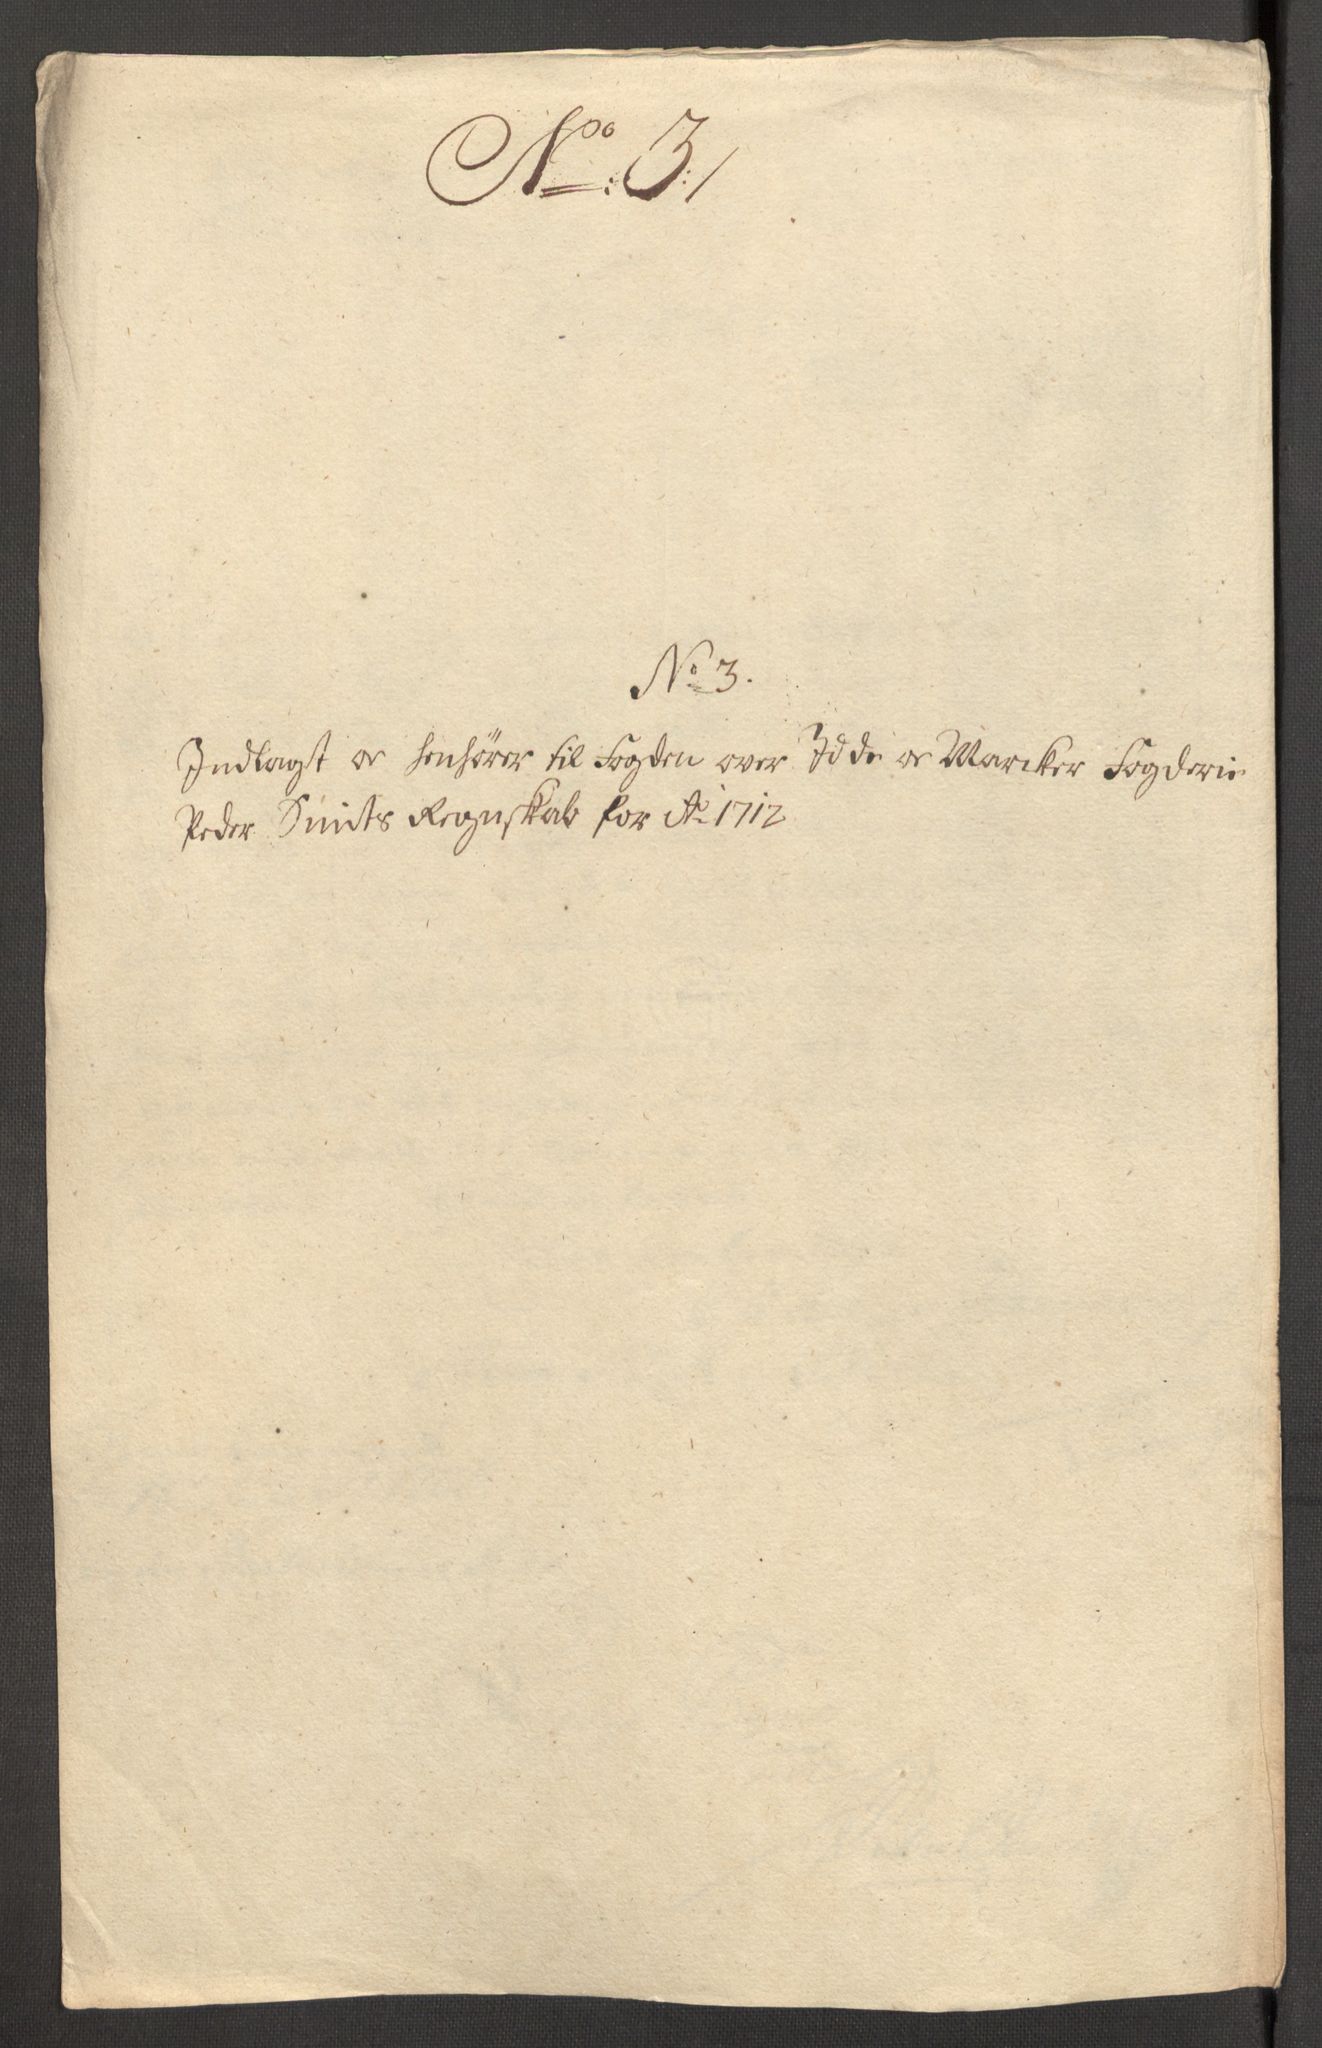 No: 3:/
No 3.
Indlagt oc henhører til Fogden over Idde oc Marcker Fogderie
Peder Smits Regnskab for Ao 1712